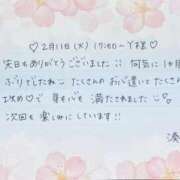 ♡ 2月11日(水) 17:00~ Y様 ♡
先日もありがとうございました ♩♩ 何気に1ヶ月
ぶりでしたね たくさんのお心遣いとたくさん
攻めで 身も心も 満たされました ♡
次回も 楽しみにしています!!
湊